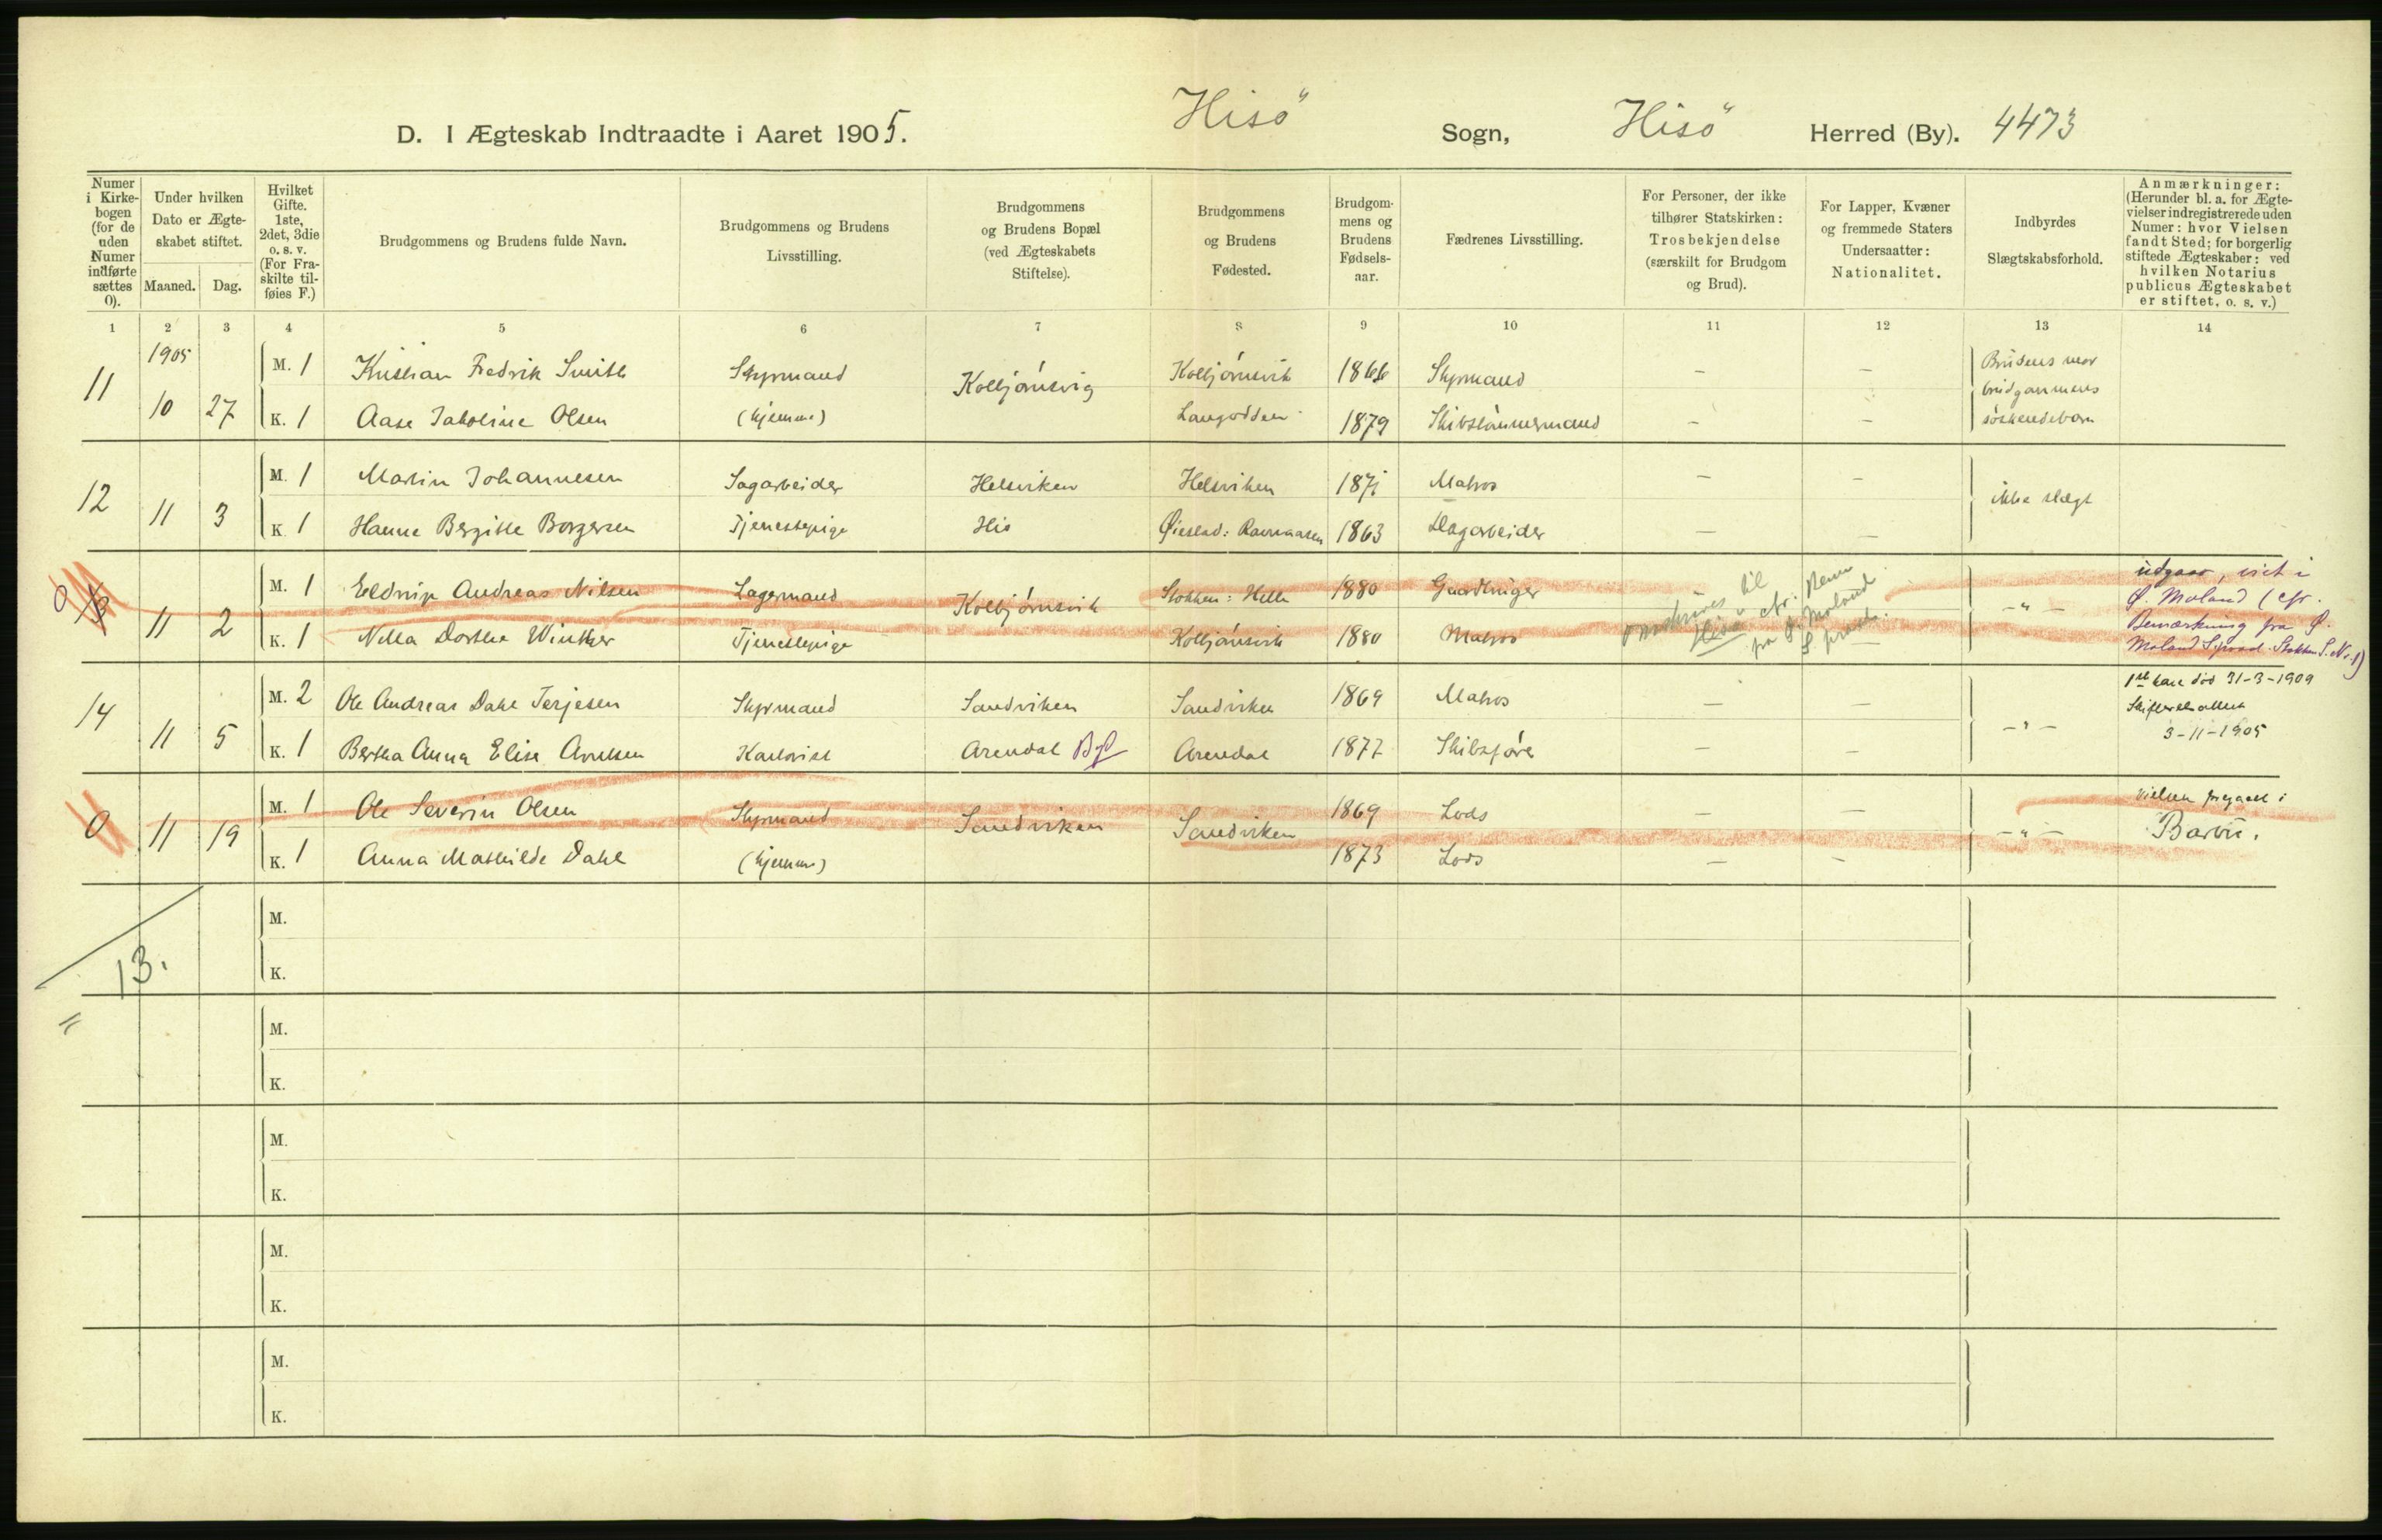 D. I Ægteskab Indtraadte i Aaret 1905. Hisö Sogn, Hisö Herred (By). 4473
Numer i Kirkebogen (for de uden Numer indførte sættes 0).
Under hvilken Dato er Ægteskabet stiftet.
Maaned. Dag.
Hvilket Gifte. 1ste, 2det, 3die o. s. v. (For Fraskilte tilføies F.)
Brudgommens og Brudens fulde Navn.
Brudgommens og Brudens Livsstilling.
Brudgommens og Brudens Bopæl (ved Ægteskabets Stiftelse).
Brudgommens og Brudens Fødested.
Brudgommens og Brudens Fødselsaar.
Fædrenes Livsstilling.
For Personer, der ikke tilhører Statskirken: Trosbekjendelse (særskilt for Brudgom og Brud).
For Lapper, Kvæner og fremmede Staters Undersaatter: Nationalitet.
Indbyrdes Slægtskabsforhold.
Anmærkninger: (Herunder bl. a. for Ægtevielser indregistrerede uden Numer: hvor Vielsen fandt Sted; for borgerlig stiftede Ægteskaber: ved hvilken Notarius publicus Ægteskabet er stiftet, o. s. v.)
1 2 3 4 5 6 7 8 9 10 11 12 13 14
1905
11 M. 1 Kristian Fredrik Smith Styrmand Kolbjørnsvig Kolbjørnsvik 1866 Styrmand – – Brudens mor
brudgommens
10 27 K. 1 Aase Jakobine Olsen (hjemme) Langodden 1879 Skibstømmermand – – søskendebarn
12 M. 1 Martin Johannesen Sagarbeider Helsviken Helsviken 1871 Matros – – ikke slægt
11 3 K 1 Hanne Bergitte Borgersen Tjenestepige His Øiestad: Ravnaasen 1863 Dagarbeider – –
0 13 M. 1 Eldrup Andreas Nilsen Lagermand Kolbjørnsvik Stokken: Helle 1880 Gaardbruger – " –
11 2 K. 1 Nella Dorthea Winther Tjenestepige Kolbjørnsvik 1880 Matros –
til
Hisø cfr. Bem
fra Ø. Moland
S. præst.
udgaar, viet i
Ø. Moland (cfr.
Bemærkning fra Ø.
Moland S. Stokken S. No. 1)
14 M. 2 Ole Andreas Dahl Terjesen Styrmand Sandviken Sandviken 1869 Matros – – – " –
11 5 K. 1 Bertha Anna Elise Arntsen Arendal Arendal 1877 Skibsfører – –
1ste kone død 31-3-1904
Skifteretsattest
3-11-1905
0 M. 1 Ole Severin Olsen Styrmand Sandviken Sandviken 1869 Lods – – – " –
11 19 K. 1 Anna Mathilde Dahl (hjemme) 1873 Lods – –
Vielsen foregaaet i
Barbu.
M.
13.
K.
M.
K.
M.
K.
M.
K.
M.
K.